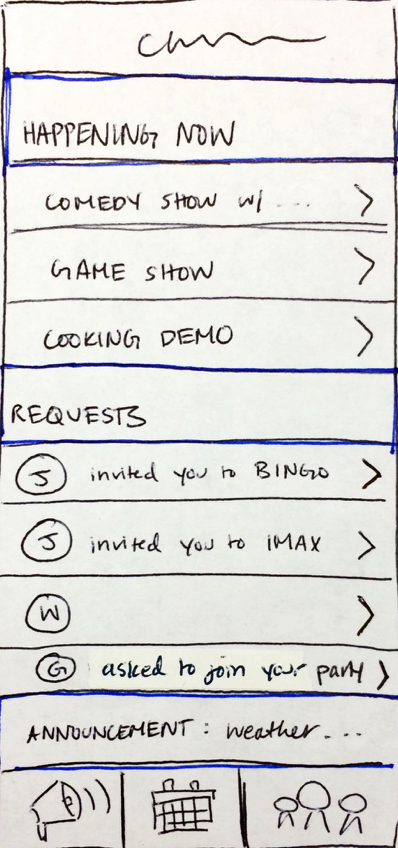 HAPPENING NOW
COMEDY SHOW W/ ...
GAME SHOW
COOKING DEMO
REQUESTS
J invited you to BINGO
J invited you to IMAX
W
G asked to join your party
ANNOUNCEMENT : weather...